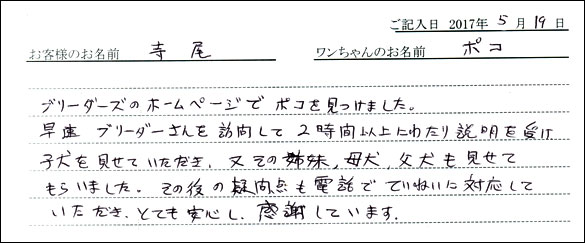 ご記入日 2017年 5月 19日
お客様のお名前 寺尾 ワンちゃんのお名前 ポコ
ブリーダーズのホームページで ポコを見つけました。
早速 ブリーダーさんを訪問して 2時間以上にわたり説明を受け
子犬を見せていただき、又その姉妹、母犬、父犬も見せて
もらいました。その後の疑問点も電話でていねいに対応して
いただき、とても安心し、感謝しています。